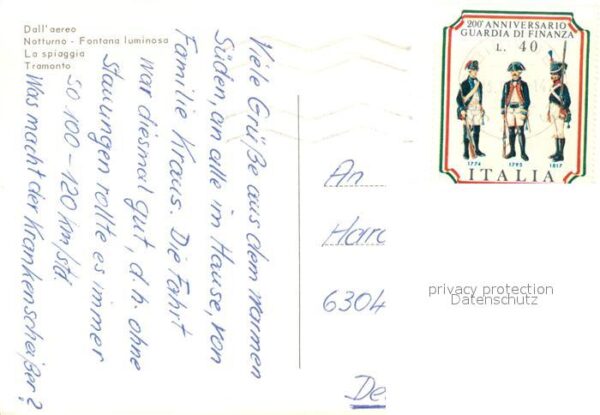 Dall'aereo
Notturno - Fontana luminosa
La spiaggia
Tramonto
Viele Grüße aus dem warmen
Süden, an alle im Hause, von
Familie Kraus. Die Fahrt
war diesmal gut, d.h. ohne
Stauungen rollte es immer
so 100-120 km/std.
Was macht der Krankenscheißer?
200° ANNIVERSARIO
GUARDIA DI FINANZA
L. 40
1774
1795
1817
ITALIA
An
Haro
6304
De
privacy protection
Datenschutz